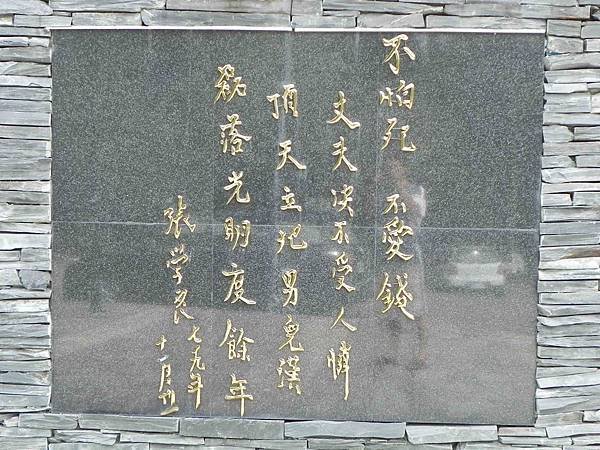 不怕死 不愛錢
丈夫决不受人憐
頂天立地男兒漢
磊落光明度餘年
張学良 七九年
十一月廿